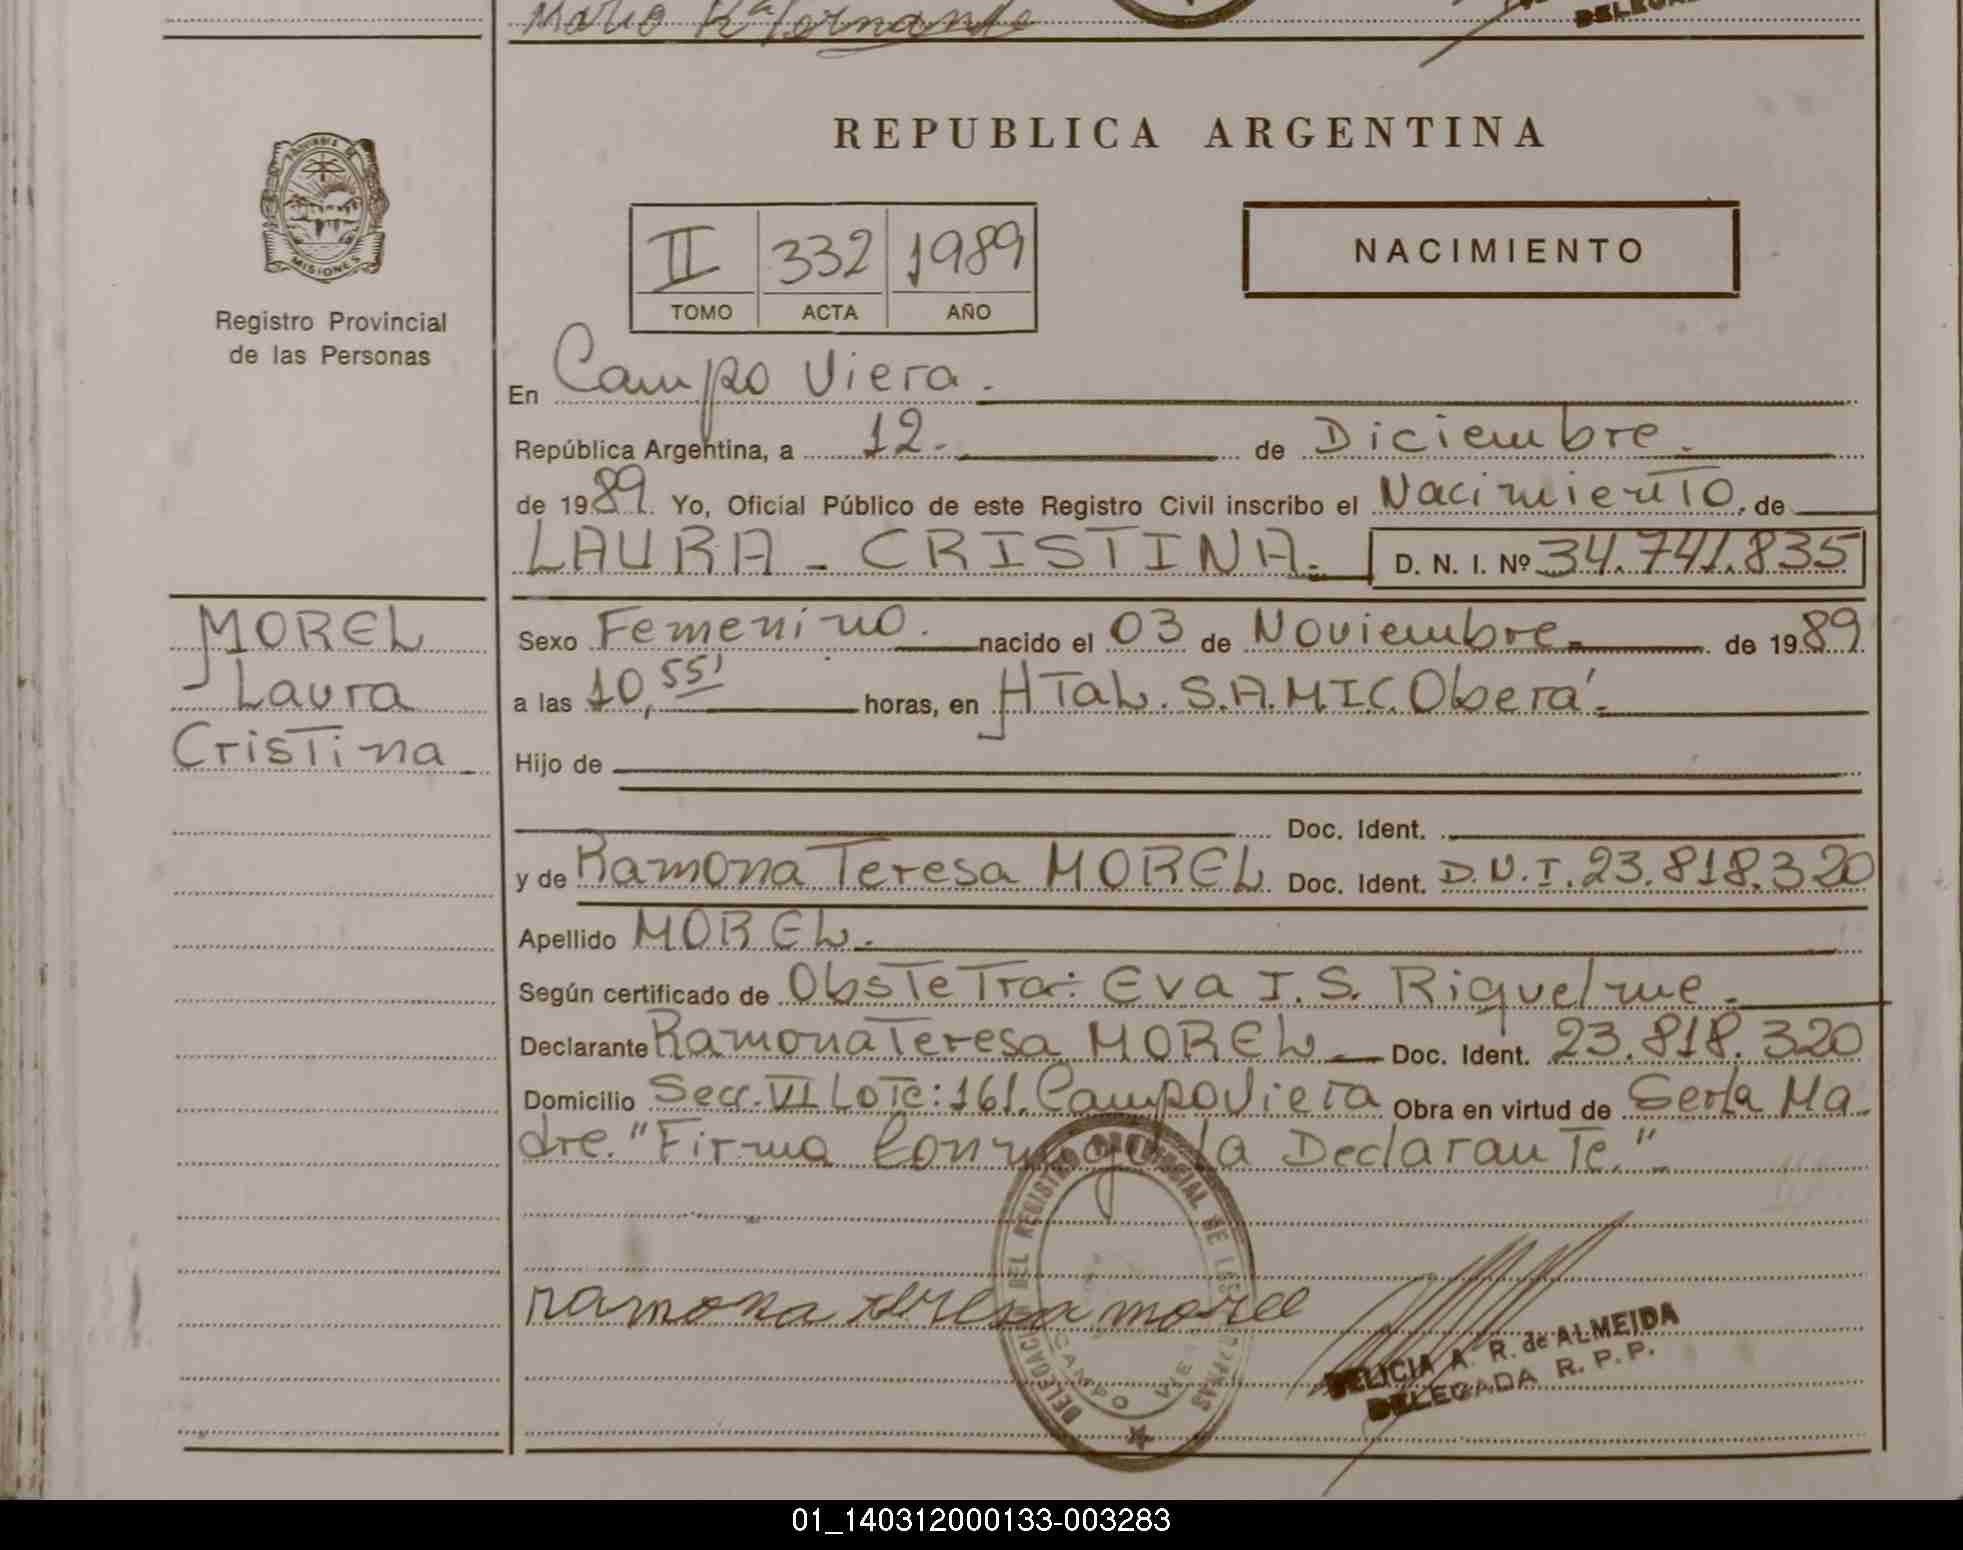 Mario Rª Fernande
DELEGAD
PROVINCIA DE
MISIONES
Registro Provincial
de las Personas
REPUBLICA ARGENTINA
II 332 1989
TOMO ACTA AÑO
NACIMIENTO
En Campo Viera.
República Argentina, a 12. de Diciembre.
de 1989. Yo, Oficial Público de este Registro Civil inscribo el Nacimiento, de
LAURA - CRISTINA. D. N. I. Nº 34.741.835
MOREL
Laura
Cristina
Sexo Femenino. nacido el 03 de Noviembre. de 1989
a las 10,55' horas, en HTaL. S.A.M.I.C. Oberá.
Hijo de
Doc. Ident.
y de Ramona Teresa MOREL Doc. Ident. D.N.I. 23.818.320
Apellido MOREL.
Según certificado de Obstetra: Eva I. S. Riquelme.
Declarante Ramona Teresa MOREL Doc. Ident. 23.818.320
Domicilio Secc. VI Lote: 161. Campo Viera Obra en virtud de Serla Ma
dre. "Firma Conmigo la Declarante"
ramona teresa morel
DELEGACION DEL REGISTRO PROVINCIAL DE LAS PERSONAS
CAMPO VIERA
DELICIA A. R. de ALMEIDA
DELEGADA R. P. P.
01_140312000133-003283